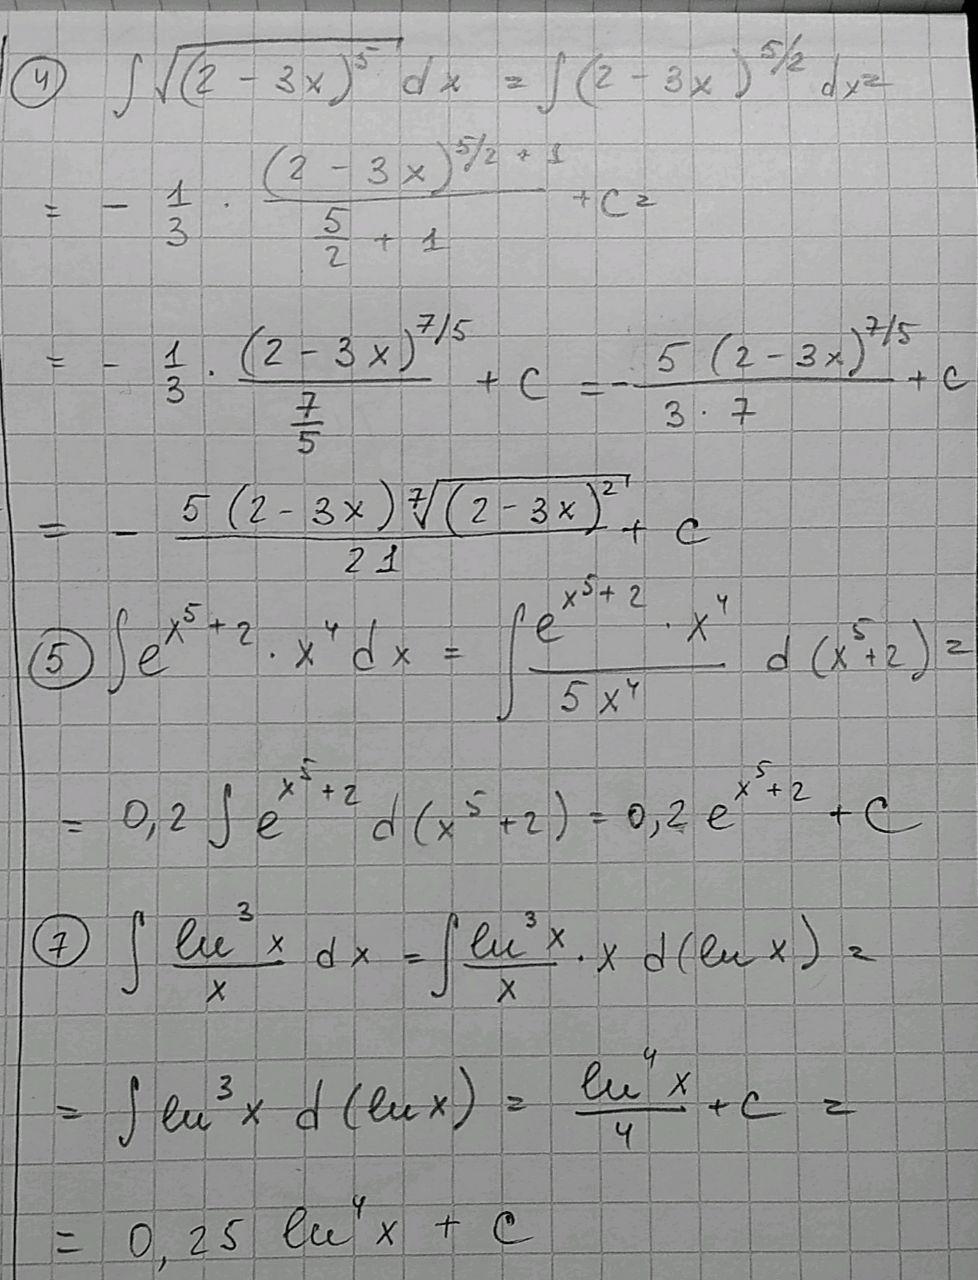 ④ ∫ √((2 - 3x)⁵) dx = ∫ (2 - 3x)^(5/2) dx =
= - 1/3 · (2 - 3x)^(5/2 + 1) / (5/2 + 1) + C =
= - 1/3 · (2 - 3x)^(7/5) / (7/5) + C = - 5 (2 - 3x)^(7/5) / (3 · 7) + C
= - 5 (2 - 3x) ⁷√((2 - 3x)²) / 21 + C
⑤ ∫ e^(x⁵ + 2) · x⁴ dx = ∫ (e^(x⁵ + 2) · x⁴) / (5x⁴) d (x⁵ + 2) =
= 0,2 ∫ e^(x⁵ + 2) d (x⁵ + 2) = 0,2 e^(x⁵ + 2) + C
⑦ ∫ (ln³ x / x) dx = ∫ (ln³ x / x) · x d (ln x) =
= ∫ ln³ x d (ln x) = ln⁴ x / 4 + C =
= 0,25 ln⁴ x + C